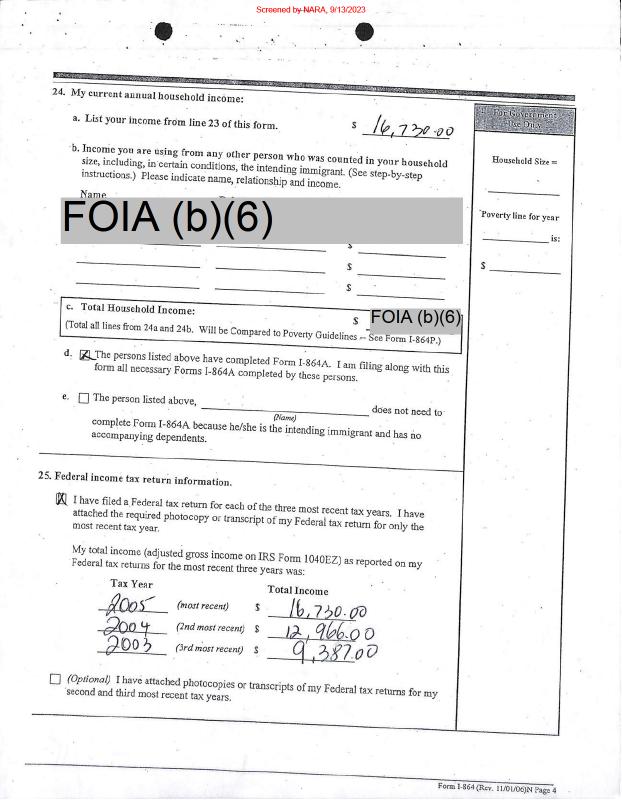 Screened by NARA, 9/13/2023
24. My current annual household income:
For Government
Use Only
a. List your income from line 23 of this form.
$ 16,730.00
b. Income you are using from any other person who was counted in your household
size, including, in certain conditions, the intending immigrant. (See step-by-step
instructions.) Please indicate name, relationship and income.
Household Size =
Name
FOIA (b)(6)
Poverty line for year
is:
$
$
$
$
c. Total Household Income:
$ FOIA (b)(6)
(Total all lines from 24a and 24b. Will be Compared to Poverty Guidelines -- See Form I-864P.)
d. The persons listed above have completed Form I-864A. I am filing along with this
form all necessary Forms I-864A completed by these persons.
e. The person listed above, does not need to
(Name)
complete Form I-864A because he/she is the intending immigrant and has no
accompanying dependents.
25. Federal income tax return information.
I have filed a Federal tax return for each of the three most recent tax years. I have
attached the required photocopy or transcript of my Federal tax return for only the
most recent tax year.
My total income (adjusted gross income on IRS Form 1040EZ) as reported on my
Federal tax returns for the most recent three years was:
Tax Year Total Income
2005 (most recent) $ 16,730.00
2004 (2nd most recent) $ 12,966.00
2003 (3rd most recent) $ 9,387.00
(Optional) I have attached photocopies or transcripts of my Federal tax returns for my
second and third most recent tax years.
Form I-864 (Rev. 11/01/06)N Page 4